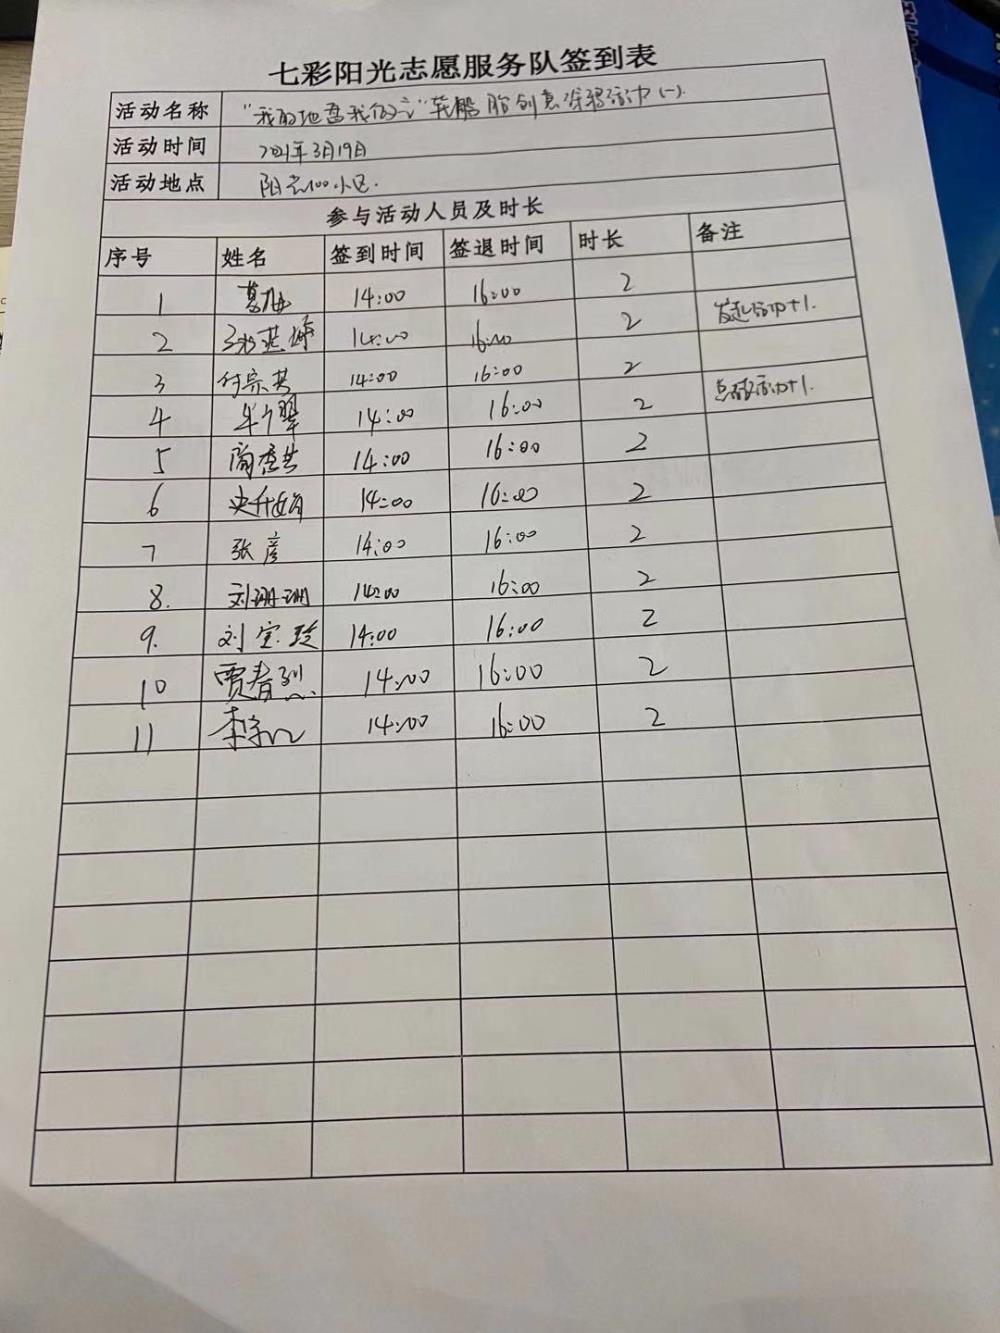 七彩阳光志愿服务队签到表
活动名称 "我的地盘我做主"轮胎创意涂鸦活动(一).
活动时间 2021年3月19日
活动地点 阳光100小区.
参与活动人员及时长
序号 姓名 签到时间 签退时间 时长 备注
1 14:00 16:00 2
2 14:00 16:00 2 发起活动+1.
3 付宗英 14:00 16:00 2
4 14:00 16:00 2 活动+1.
5 14:00 16:00 2
6 史升娟 14:00 16:00 2
7 张彦 14:00 16:00 2
8. 刘珊珊 14:00 16:00 2
9. 刘宝玲 14:00 16:00 2
10 贾春烈 14:00 16:00 2
11 14:00 16:00 2